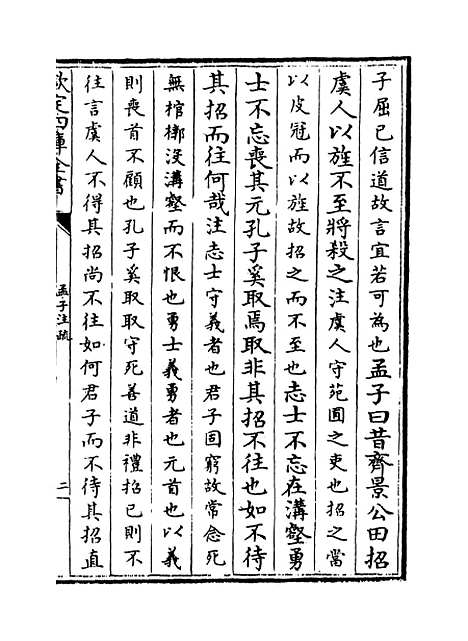 子屈己信道故言宜若可為也孟子曰昔齊景公田招
虞人以旌不至將殺之注虞人守苑囿之吏也招之當
以皮冠而以旌故招之而不至也志士不忘在溝壑勇
士不忘喪其元孔子奚取焉取非其招不往也如不待
其招而往何哉注志士守義者也君子固窮故常念死
無棺槨沒溝壑而不恨也勇士義勇者也元首也以義
則喪首不顧也孔子奚取取守死善道非禮招已則不
往言虞人不得其招尚不往如何君子而不待其招直
欽定四庫全書
孟子注疏
二